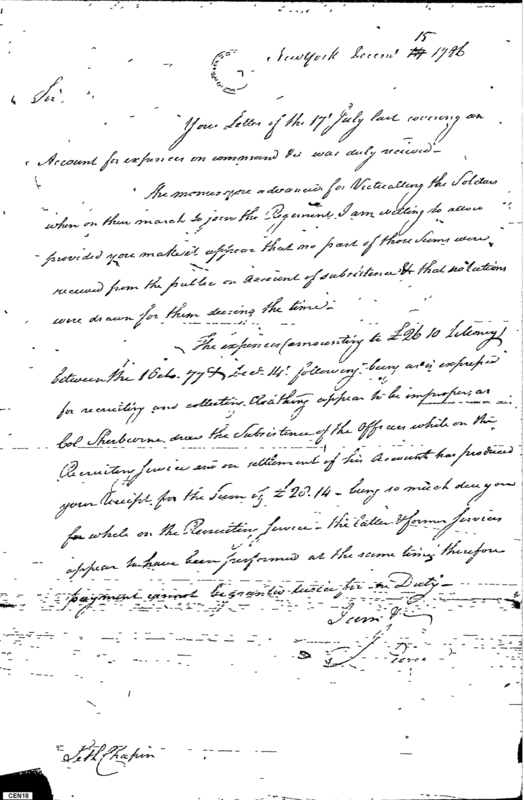 15
New York Decem. 1786
Sir.
Your Letter of the 17 July last covering an
Account for expences on command &c was duly received -
The monies you advanced for Victualling the Soldiers
when on their march to join the Regiment, I am willing to allow
provided you make it appear that no part of those Sums were
received from the public on Account of subsistence & that no rations
were drawn for them during the time -
The expences (amounting to £26 10
between the 1 Octo. 77 & Dec. 14 following being as is expressed
for recruiting and collecting Cloathing appear to be improper, as
Col Sherburne drew the Subsistence of the Officers while on the
Recruiting Service and on settlement of his Accounts has produced
your receipt for the Sum of £20.14 - being so much due you
for while on the Recruiting Service - the latter & former Services
appear to have been performed at the same time, therefore
payment cannot be granted twice for Duty -
I am &c
J Pierce
Seth Chapin
CEN18